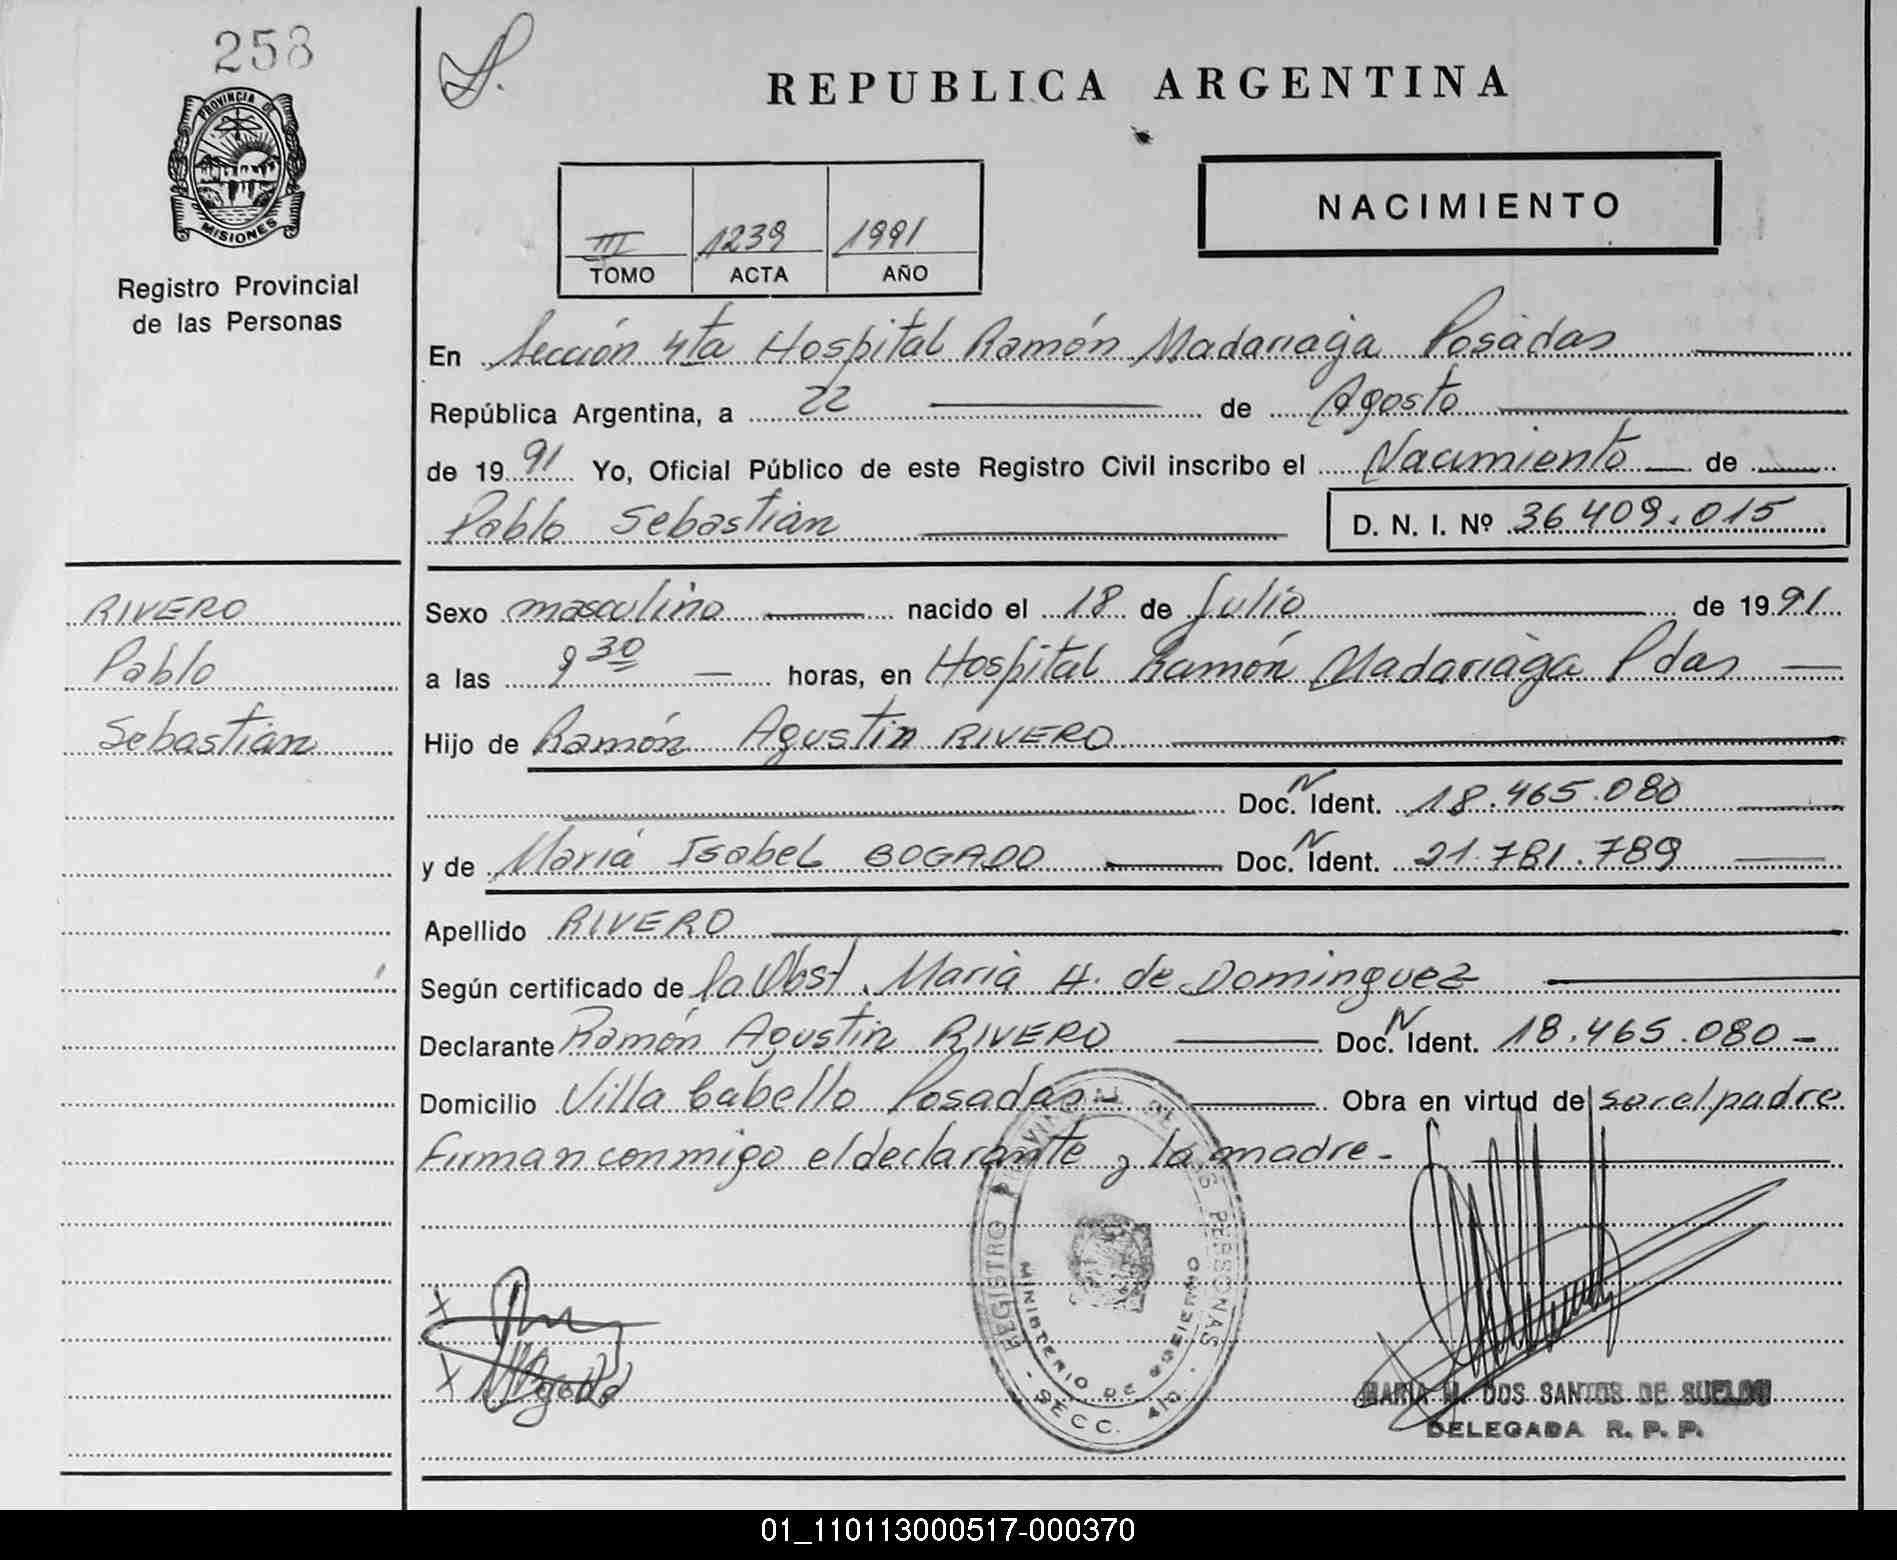 258
PROVINCIA DE
MISIONES
Registro Provincial
de las Personas
REPUBLICA ARGENTINA
NACIMIENTO
III 1239 1991
TOMO ACTA AÑO
En Sección 4ta Hospital Ramón Madariaga Posadas
República Argentina, a 22 de Agosto
de 1991 Yo, Oficial Público de este Registro Civil inscribo el Nacimiento de
Pablo Sebastián D. N. I. Nº 36.409.015
RIVERO
Pablo
Sebastián
Sexo masculino nacido el 18 de Julio de 1991
a las 9 30 horas, en Hospital Ramón Madariaga Pdas
Hijo de Ramón Agustín RIVERO
Doc. N Ident. 18.465.080
y de María Isabel BOGADO Doc. N Ident. 21.781.789
Apellido RIVERO
Según certificado de la Obst. María H. de Dominguez
Declarante Ramón Agustín RIVERO Doc. N Ident. 18.465.080
Domicilio Villa Cabello Posadas Obra en virtud de ser el padre
Firman conmigo el declarante y la madre-
REGISTRO PROVINCIAL DE LAS PERSONAS
MINISTERIO DE GOBIERNO
SECC. 4ta
X
X
MARIA M. DOS SANTOS DE SUELDO
DELEGADA R. P. P.
01_110113000517-000370